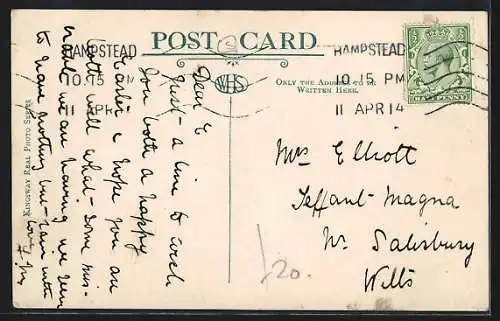 POST CARD
HAMPSTEAD
10 15 PM
11 APR 14
HAMPSTEAD
10 15 PM
11 APR 14
HALF PENNY
WHS
ONLY THE ADDRESS TO BE
WRITTEN HERE.
KINGSWAY REAL PHOTO SERIES
Dear E
Just a line to wish
you both a happy
Easter & hope you are
both well what
we are having we seem
to have nothing but rain with
love
Mrs Elliott
Teffant-Magna
Nr. Salisbury
Wilts
120.